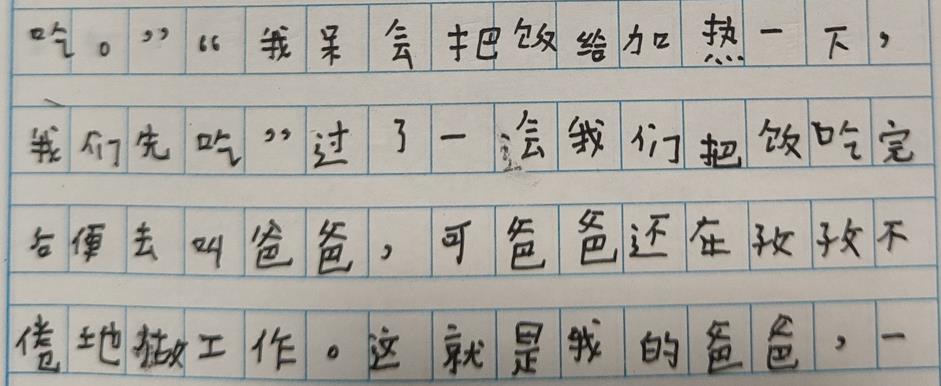 吃。”“我呆会把饭给加热一下，
我们先吃”过了一会我们把饭吃完
后便去叫爸爸，可爸爸还在孜孜不
倦地做工作。这就是我的爸爸，一